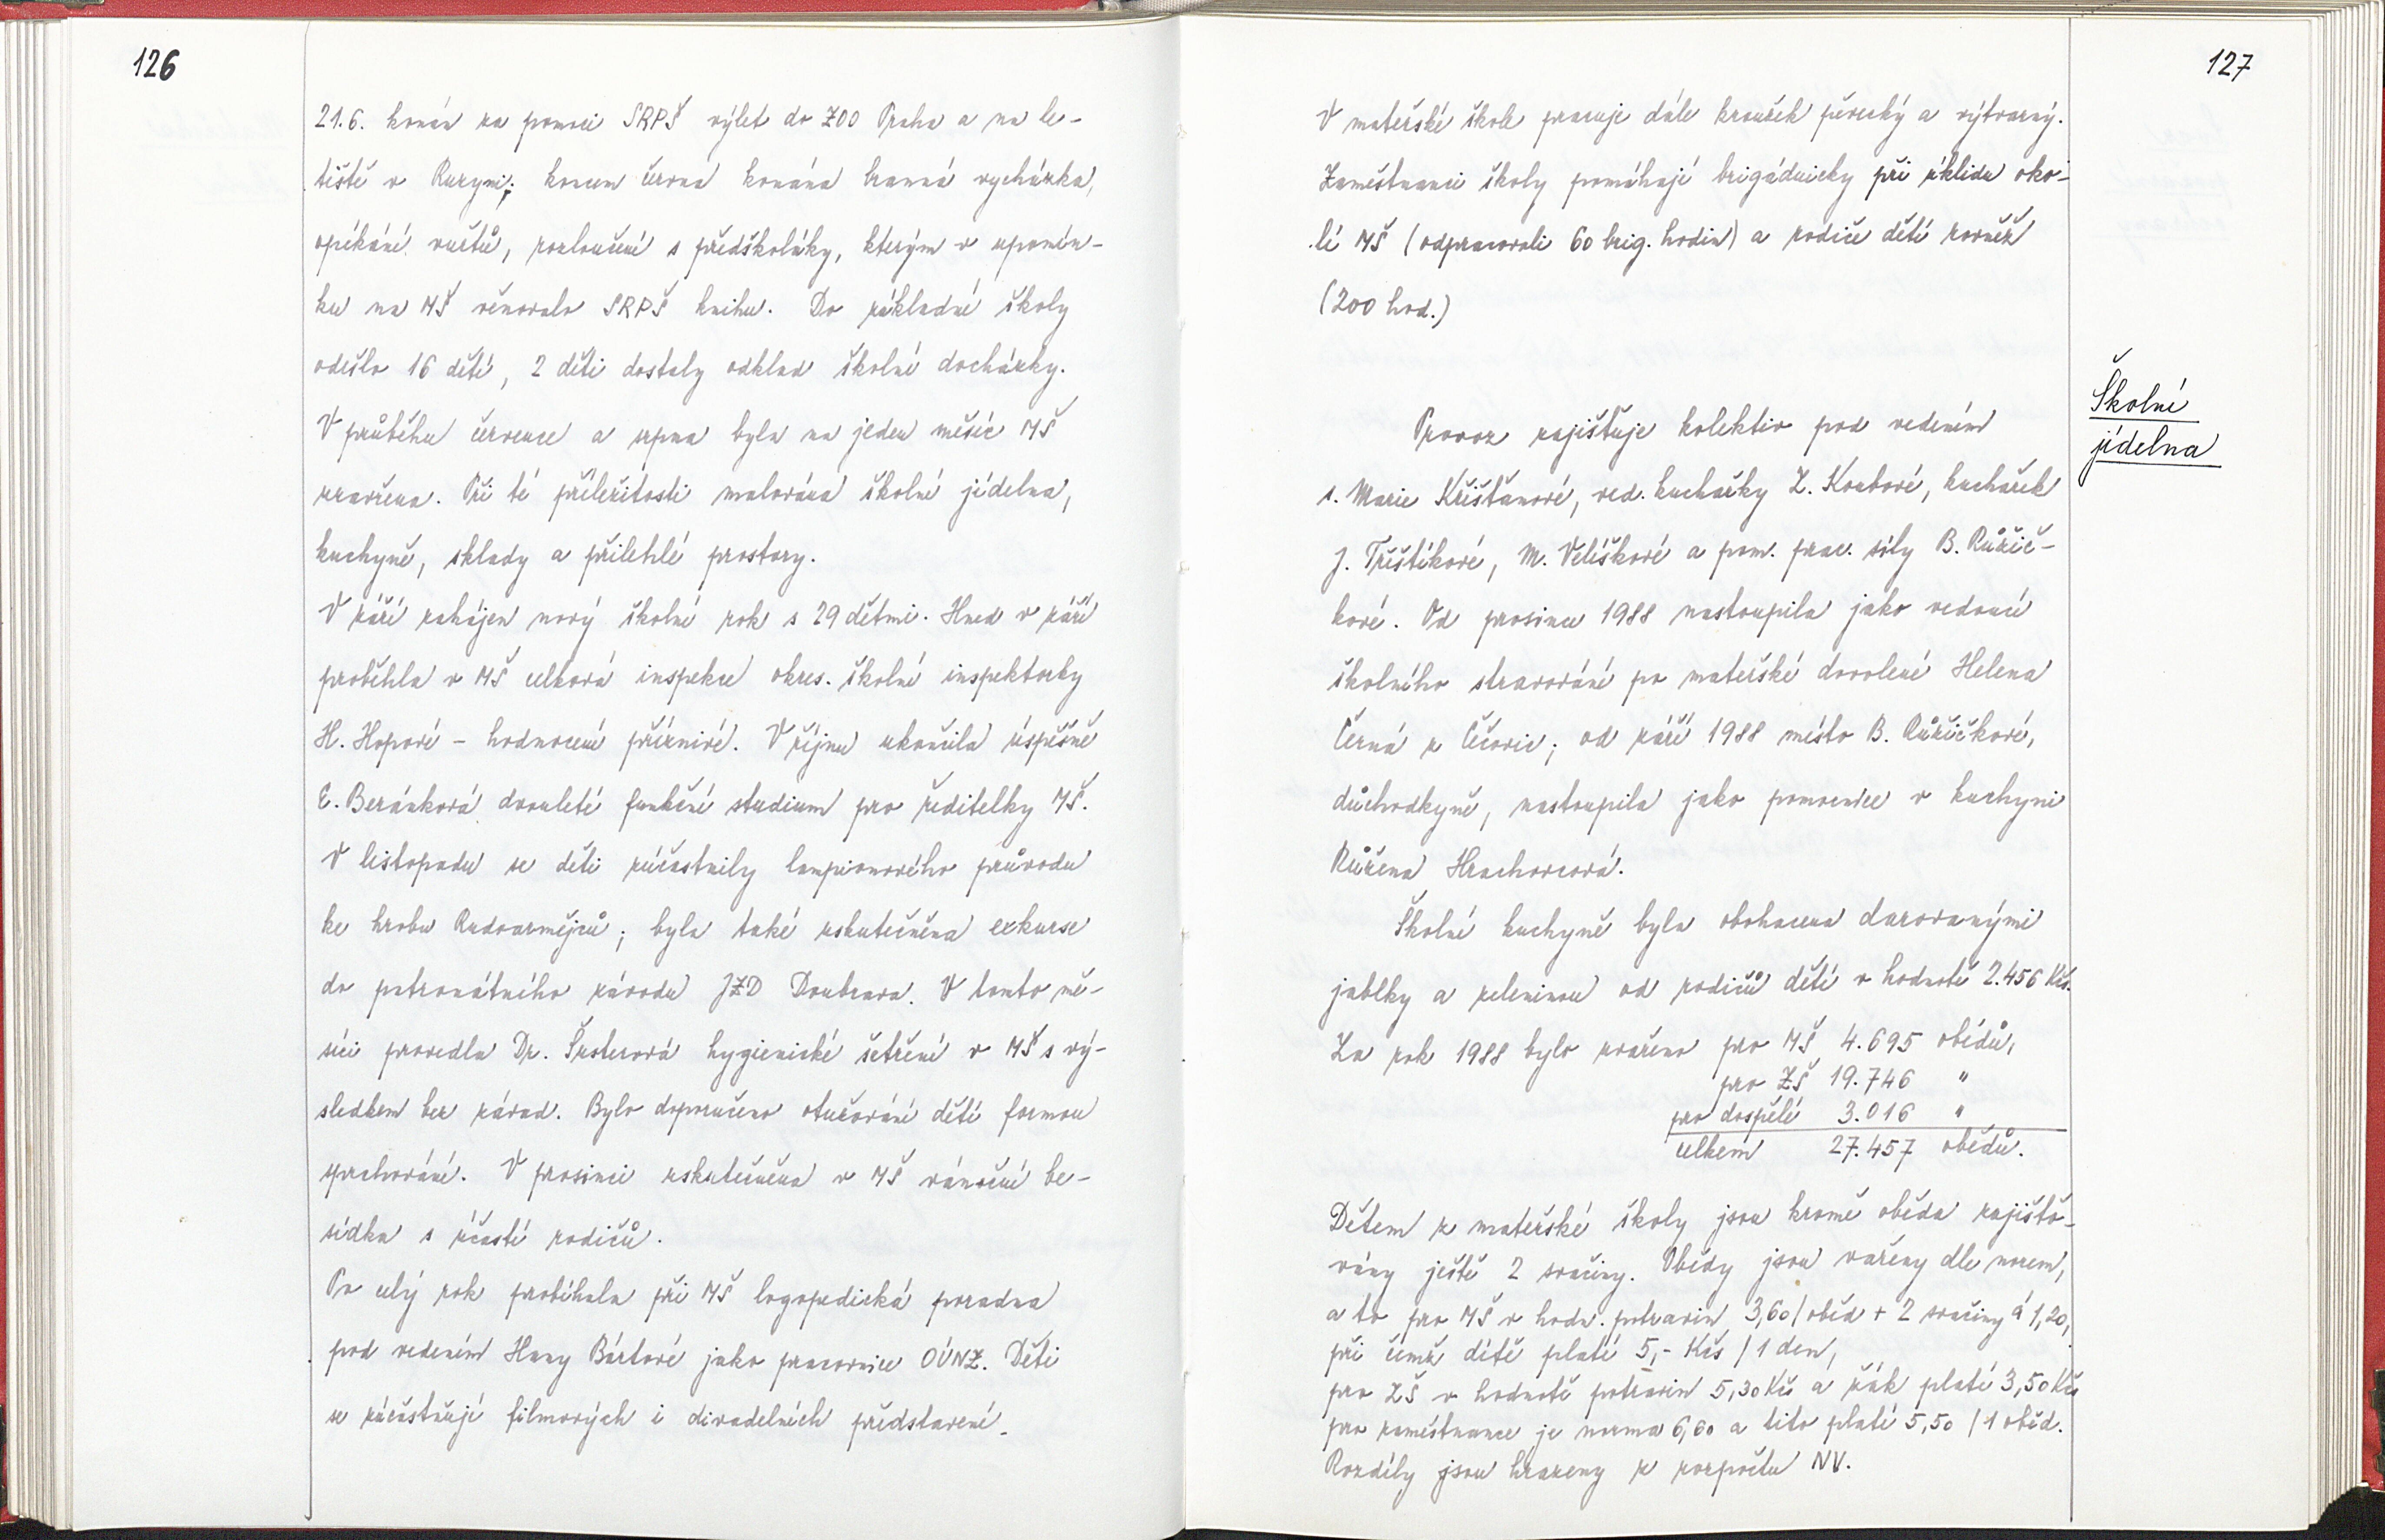 126
21.6. konán za pomoci SRPŠ výlet do ZOO Praha a na le-
tiště v Ruzyni; koncem června konána branná vycházka,
opékání vuřtů, rozloučení s předškoláky, kterým v upomín-
ku na MŠ věnovalo SRPŠ knihu. Do základní školy
odešlo 16 dětí, 2 děti dostaly odklad školní docházky.
V průběhu července a srpna byla na jeden měsíc MŠ
uzavřena. Při té příležitosti malována školní jídelna,
kuchyně, sklady a přilehlé prostory.
V září zahájen nový školní rok s 29 dětmi. Hned v září
proběhla v MŠ celková inspekce okres. školní inspektorky
H. Hopové - hodnocení příznivé. V říjnu ukončila úspěšně
E. Beránková dvouleté funkční studium pro ředitelky MŠ.
V listopadu se děti zúčastnily lampionového průvodu
ke hrobu Rudoarmějců; byla také uskutečněna exkurse
do patronátního závodu JZD Doubrava. V tomto mě-
síci provedla Dr. Šusterová hygienické šetření v MŠ s vý-
sledkem bez závad. Bylo doporučeno otužování dětí formou
sprchování. V prosinci uskutečněna v MŠ vánoční be-
sídka s účastí rodičů.
Po celý rok probíhala při MŠ logopedická poradna
pod vedením Hany Bártové jako pracovnice OÚNZ. Děti
se zúčastňují filmových i divadelních představení.
127
V mateřské škole pracuje dále kroužek pěvecký a výtvarný.
Zaměstnanci školy pomáhají brigádnicky při úklidu oko-
lí MŠ (odpracovali 60 brig. hodin) a rodiče dětí rovněž
(200 hod.)
Školní
jídelna
Provoz zajišťuje kolektiv pod vedením
s. Marie Křišťanové, ved. kuchařky Z. Koubové, kuchařek
J. Tříštíkové, M. Velíškové a pom. prac. síly B. Růžič-
kové. Od prosince 1988 nastoupila jako vedoucí
školního stravování po mateřské dovolené Helena
Černá z Čečovic; od září 1988 místo B. Růžičkové,
důchodkyně, nastoupila jako pomocnice v kuchyni
Růžena Hrachovcová.
Školní kuchyně byla obohacena darovanými
jablky a zeleninou od rodičů dětí v hodnotě 2.456 Kčs.
Za rok 1988 bylo uvařeno pro MŠ 4.695 obědů,
pro ZŠ 19.746 "
pro dospělé 3.016 "
celkem 27.457 obědů.
Dětem z mateřské školy jsou kromě oběda zajišťo-
vány ještě 2 svačiny. Obědy jsou vařeny dle norem,
a to pro MŠ v hodn. potravin 3,60/oběd + 2 svačiny á 1,20,
při čemž dítě platí 5,- Kčs / 1 den,
pro ZŠ v hodnotě potravin 5,30 Kčs a žák platí 3,50 Kčs
pro zaměstnance je norma 6,60 a tito platí 5,50 / 1 oběd.
Rozdíly jsou hrazeny z rozpočtu NV.